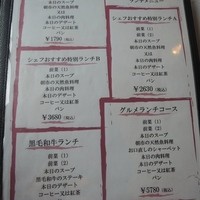 本日のスープ
朝市の天然魚料理
本日の肉料理
本日のデザート
コーヒー又は紅茶
パン
￥1790（税込）
シェフおすすめ特別ランチA
前菜（1）
本日のスープ
朝市の天然魚料理
本日の肉料理
本日のデザート
コーヒー又は紅茶
パン
￥2630（税込）
シェフおすすめ特別ランチB
前菜（1）
前菜（2）
本日のスープ
朝市の天然魚料理
本日の肉料理
本日のデザート
コーヒー又は紅茶
パン
￥3680（税込）
グルメランチコース
前菜（1）
前菜（2）
本日のスープ
朝市の天然魚料理
お口直しのシャーベット
本日の肉料理
本日のデザート
コーヒー又は紅茶
パン
￥5780（税込）
黒毛和牛ランチ
前菜（1）
前菜（2）
本日のスープ
黒毛和牛のステーキ
本日のデザート
コーヒー又は紅茶